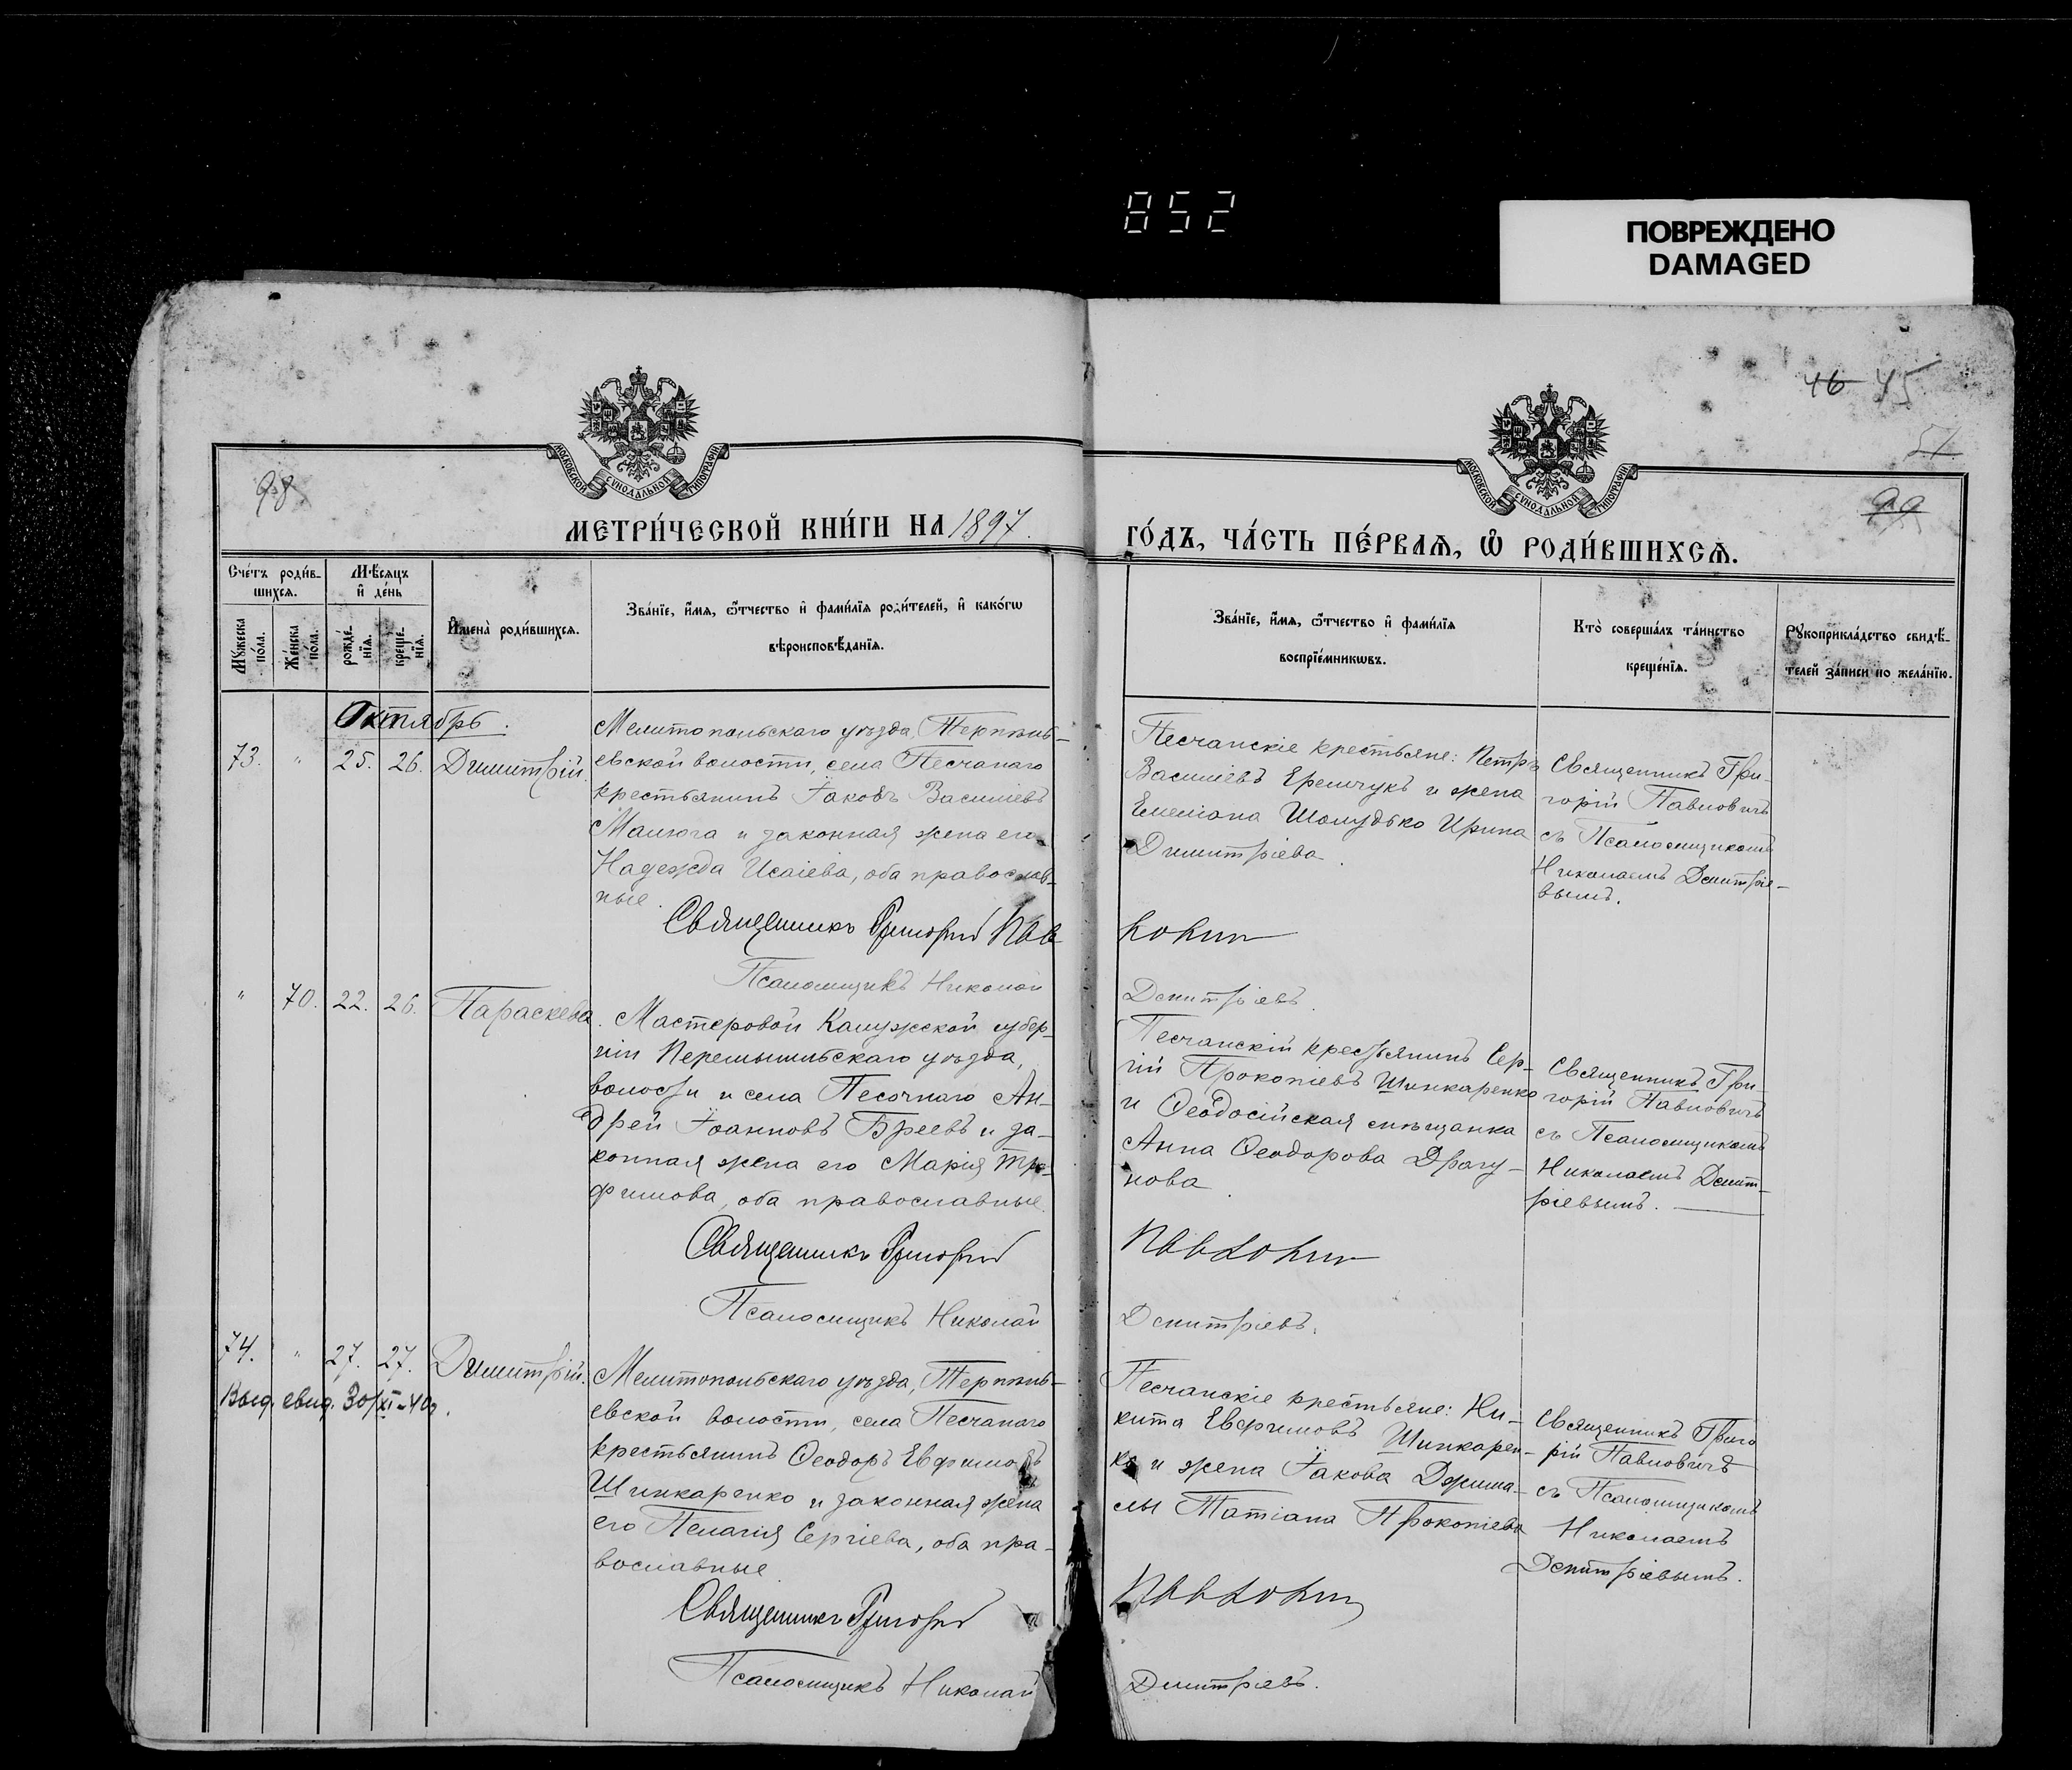 852
ПОВРЕЖДЕНО
DAMAGED
46 45
51
98
99
МОСКОВСКОЙ СУНОДАЛЬНОЙ ТИПОГРАФІИ
МОСКОВСКОЙ СУНОДАЛЬНОЙ ТИПОГРАФІИ
МЕТРИ́ЧЕСКОЙ КНИ́ГИ НА 1897.
ГО́ДЪ, ЧА́СТЬ ПЕ́РВАѦ, Ѡ҆ РОДИ́ВШИХСѦ.
Сче́тъ роди́в-
шихсѧ.
Мѣ́сѧцъ
и҆ де́нь
Мꙋ́жеска
по́ла.
Же́нска
по́ла.
рожде́-
нїѧ.
креще́-
нїѧ.
И҆мена̀ роди́вшихсѧ.
Зва́нїе, и҆́мѧ, ѻ҆́тчество и҆ фами́лїѧ роди́телей, и҆ како́гѡ
вѣроисповѣ́данїѧ.
Зва́нїе, и҆́мѧ, ѻ҆́тчество и҆ фами́лїѧ
воспрїе́мникѡвъ.
Кто̀ соверша́лъ та́инство
креще́нїѧ.
Рꙋкоприкла́дство свидѣ́-
телей за́писи по жела́нїю.
Октябрь.
73. " 25. 26. Димитрій.
Мелитопольскаго уѣзда, Терпѣнь-
евской волости, села Песчанаго
крестьянинъ Іаковъ Васильевъ
Малюга и законная жена его
Надежда Исаіева, оба православ-
ные.
Песчанскіе крестьяне: Петръ
Васильевъ Еремчукъ и жена
Емеліана Шамудько Ирина
Димитріева.
Священникъ Гри-
горій Павловичъ
съ Псаломщикомъ
Николаемъ Демитріе-
вымъ.
Священникъ Григорій Пав
Псаломщикъ Николай
Демитріевъ.
" 70. 22. 26. Параскева.
Мастеровой Калужской губер-
ніи Перемышльскаго уѣзда,
волости и села Песочнаго Ан-
дрей Іоанновъ Бреевъ и за-
конная жена его Марія Тро-
фимова, оба православные.
Песчанскій крестьянинъ Сер-
гій Прокопіевъ Шинкаренко
и Ѳеодосійская мѣщанка
Анна Ѳеодорова Драгу-
нова.
Священникъ Гри-
горій Павловичъ
съ Псаломщикомъ
Николаемъ Демит-
ріевымъ.
Священникъ Григорій
Псаломщикъ Николай
Демитріевъ.
74. " 27. 27. Димитрій.
Выд. свид. 30/XI-40г.
Мелитопольскаго уѣзда, Терпѣнь-
евской волости, села Песчанаго
крестьянинъ Ѳеодоръ Евфимовъ
Шинкаренко и законная жена
его Пелагія Сергіева, оба пра-
вославные.
Песчанскіе крестьяне: Ни-
кита Евфимовъ Шинкарен-
ко и жена Іакова Джима-
лы Татіана Прокопіева
Священникъ Григо
рій Павловичъ
съ Псаломщикомъ
Николаемъ
Демитріевымъ.
Священникъ Григорій
Псаломщикъ Николай
Димитріевъ.